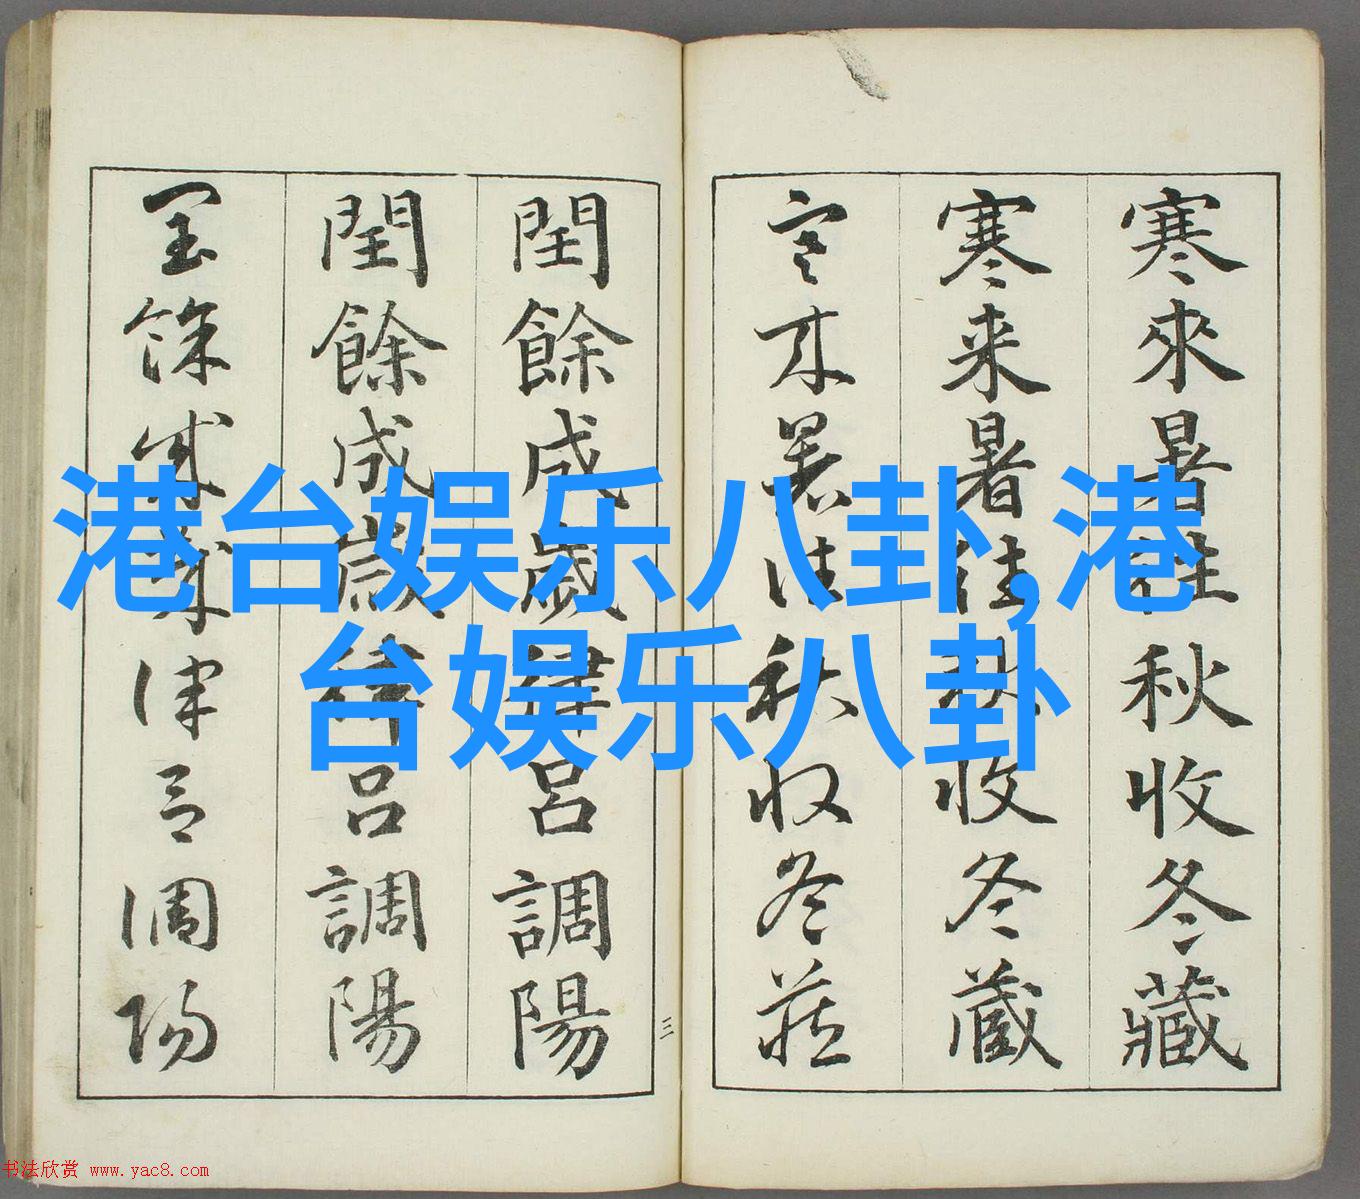 寒來暑往秋收冬藏
寒来暑往秋收冬蔵
寒来暑往秋收冬藏
閏餘成歲律呂調陽
閏餘成歲律呂調陽
閏餘成歲律呂調陽
三
港台娱乐八卦,港
台娱乐八卦
书法欣赏 www.yac8.com